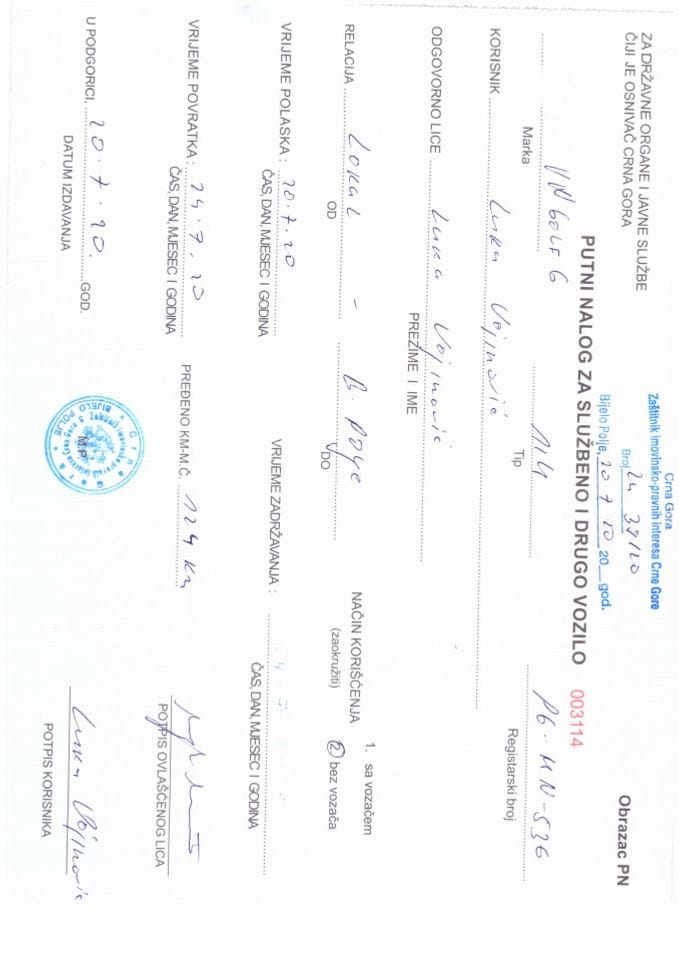 ZA DRŽAVNE ORGANE I JAVNE SLUŽBE
ČIJI JE OSNIVAČ CRNA GORA
Crna Gora
Zaštitnik imovinsko-pravnih interesa Crne Gore
Broj 24 39/20
Bijelo Polje, 20.7.20 20__god.
Obrazac PN
PUTNI NALOG ZA SLUŽBENO I DRUGO VOZILO 003114
VW GOLF 6
PG-MN-536
Marka Tip Registarski broj
KORISNIK Luka Vojinović
ODGOVORNO LICE Luka Vojinović
PREZIME I IME
RELACIJA Lokal - B. Polje
OD DO
NAČIN KORIŠĆENJA
(zaokružiti)
1. sa vozačem
2 bez vozača
VRIJEME POLASKA: 20.7.20
ČAS, DAN, MJESEC I GODINA
VRIJEME ZADRŽAVANJA:
ČAS, DAN, MJESEC I GODINA
VRIJEME POVRATKA: 24.7.20
ČAS, DAN, MJESEC I GODINA
PREĐENO KM-M.Č. 124 km
POTPIS OVLAŠĆENOG LICA
U PODGORICI, 20.7.20. GOD.
DATUM IZDAVANJA
M.P.
Luka Vojinović
POTPIS KORISNIKA